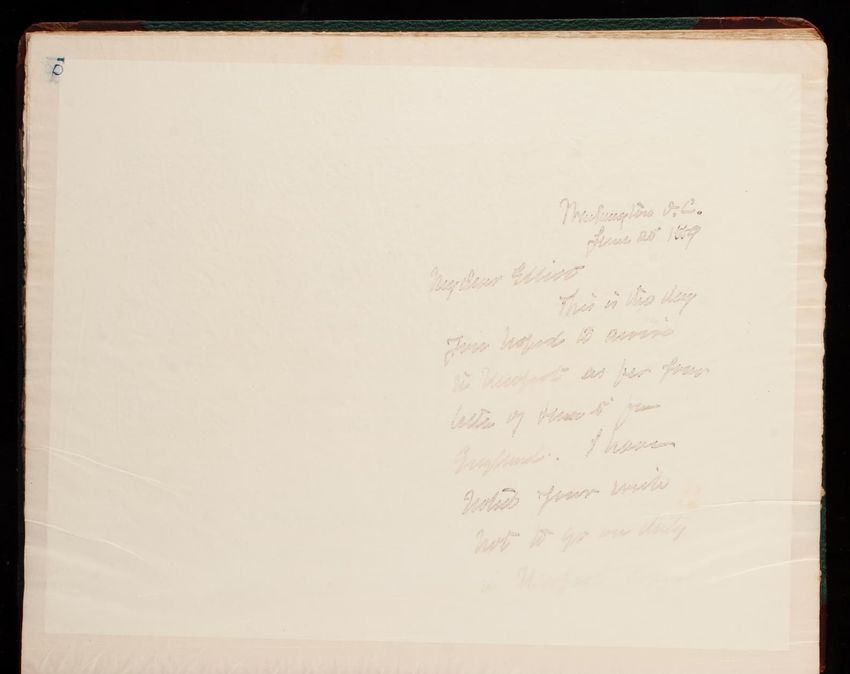 Washington D.C.
June 25 1889
My dear Elliot
This is the day
you hoped to arrive
in Newport as per your
letter of June 5 from
England. I have
noted your wish
not to go on duty
in Newport